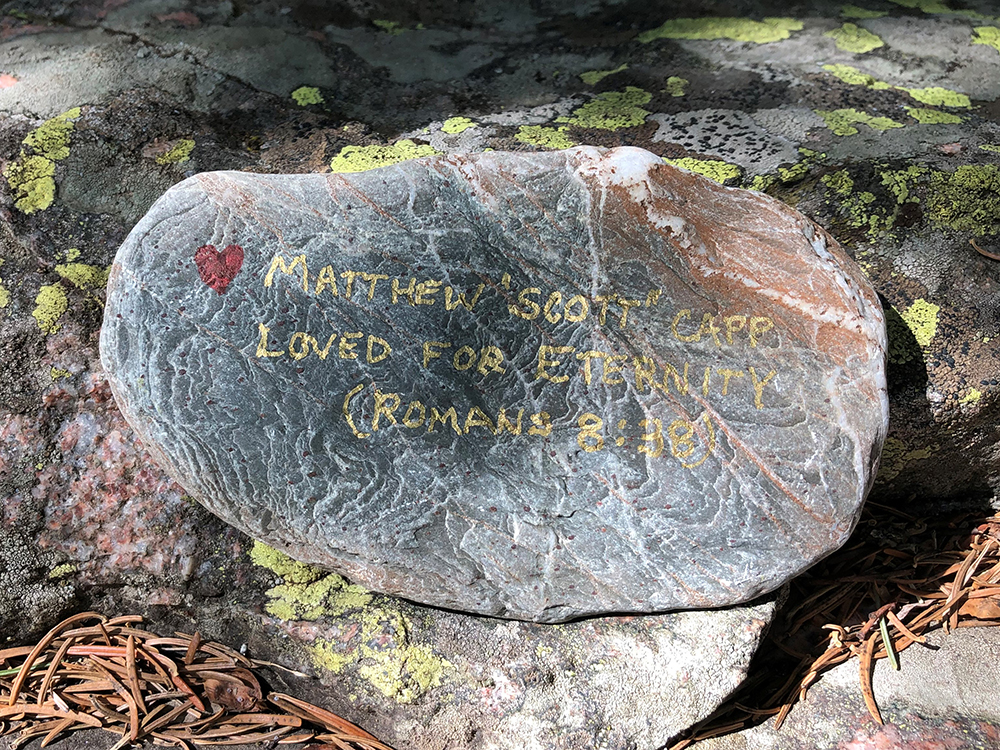 MATTHEW "SCOTT" CAPP
LOVED FOR ETERNITY
(ROMANS 8:38)